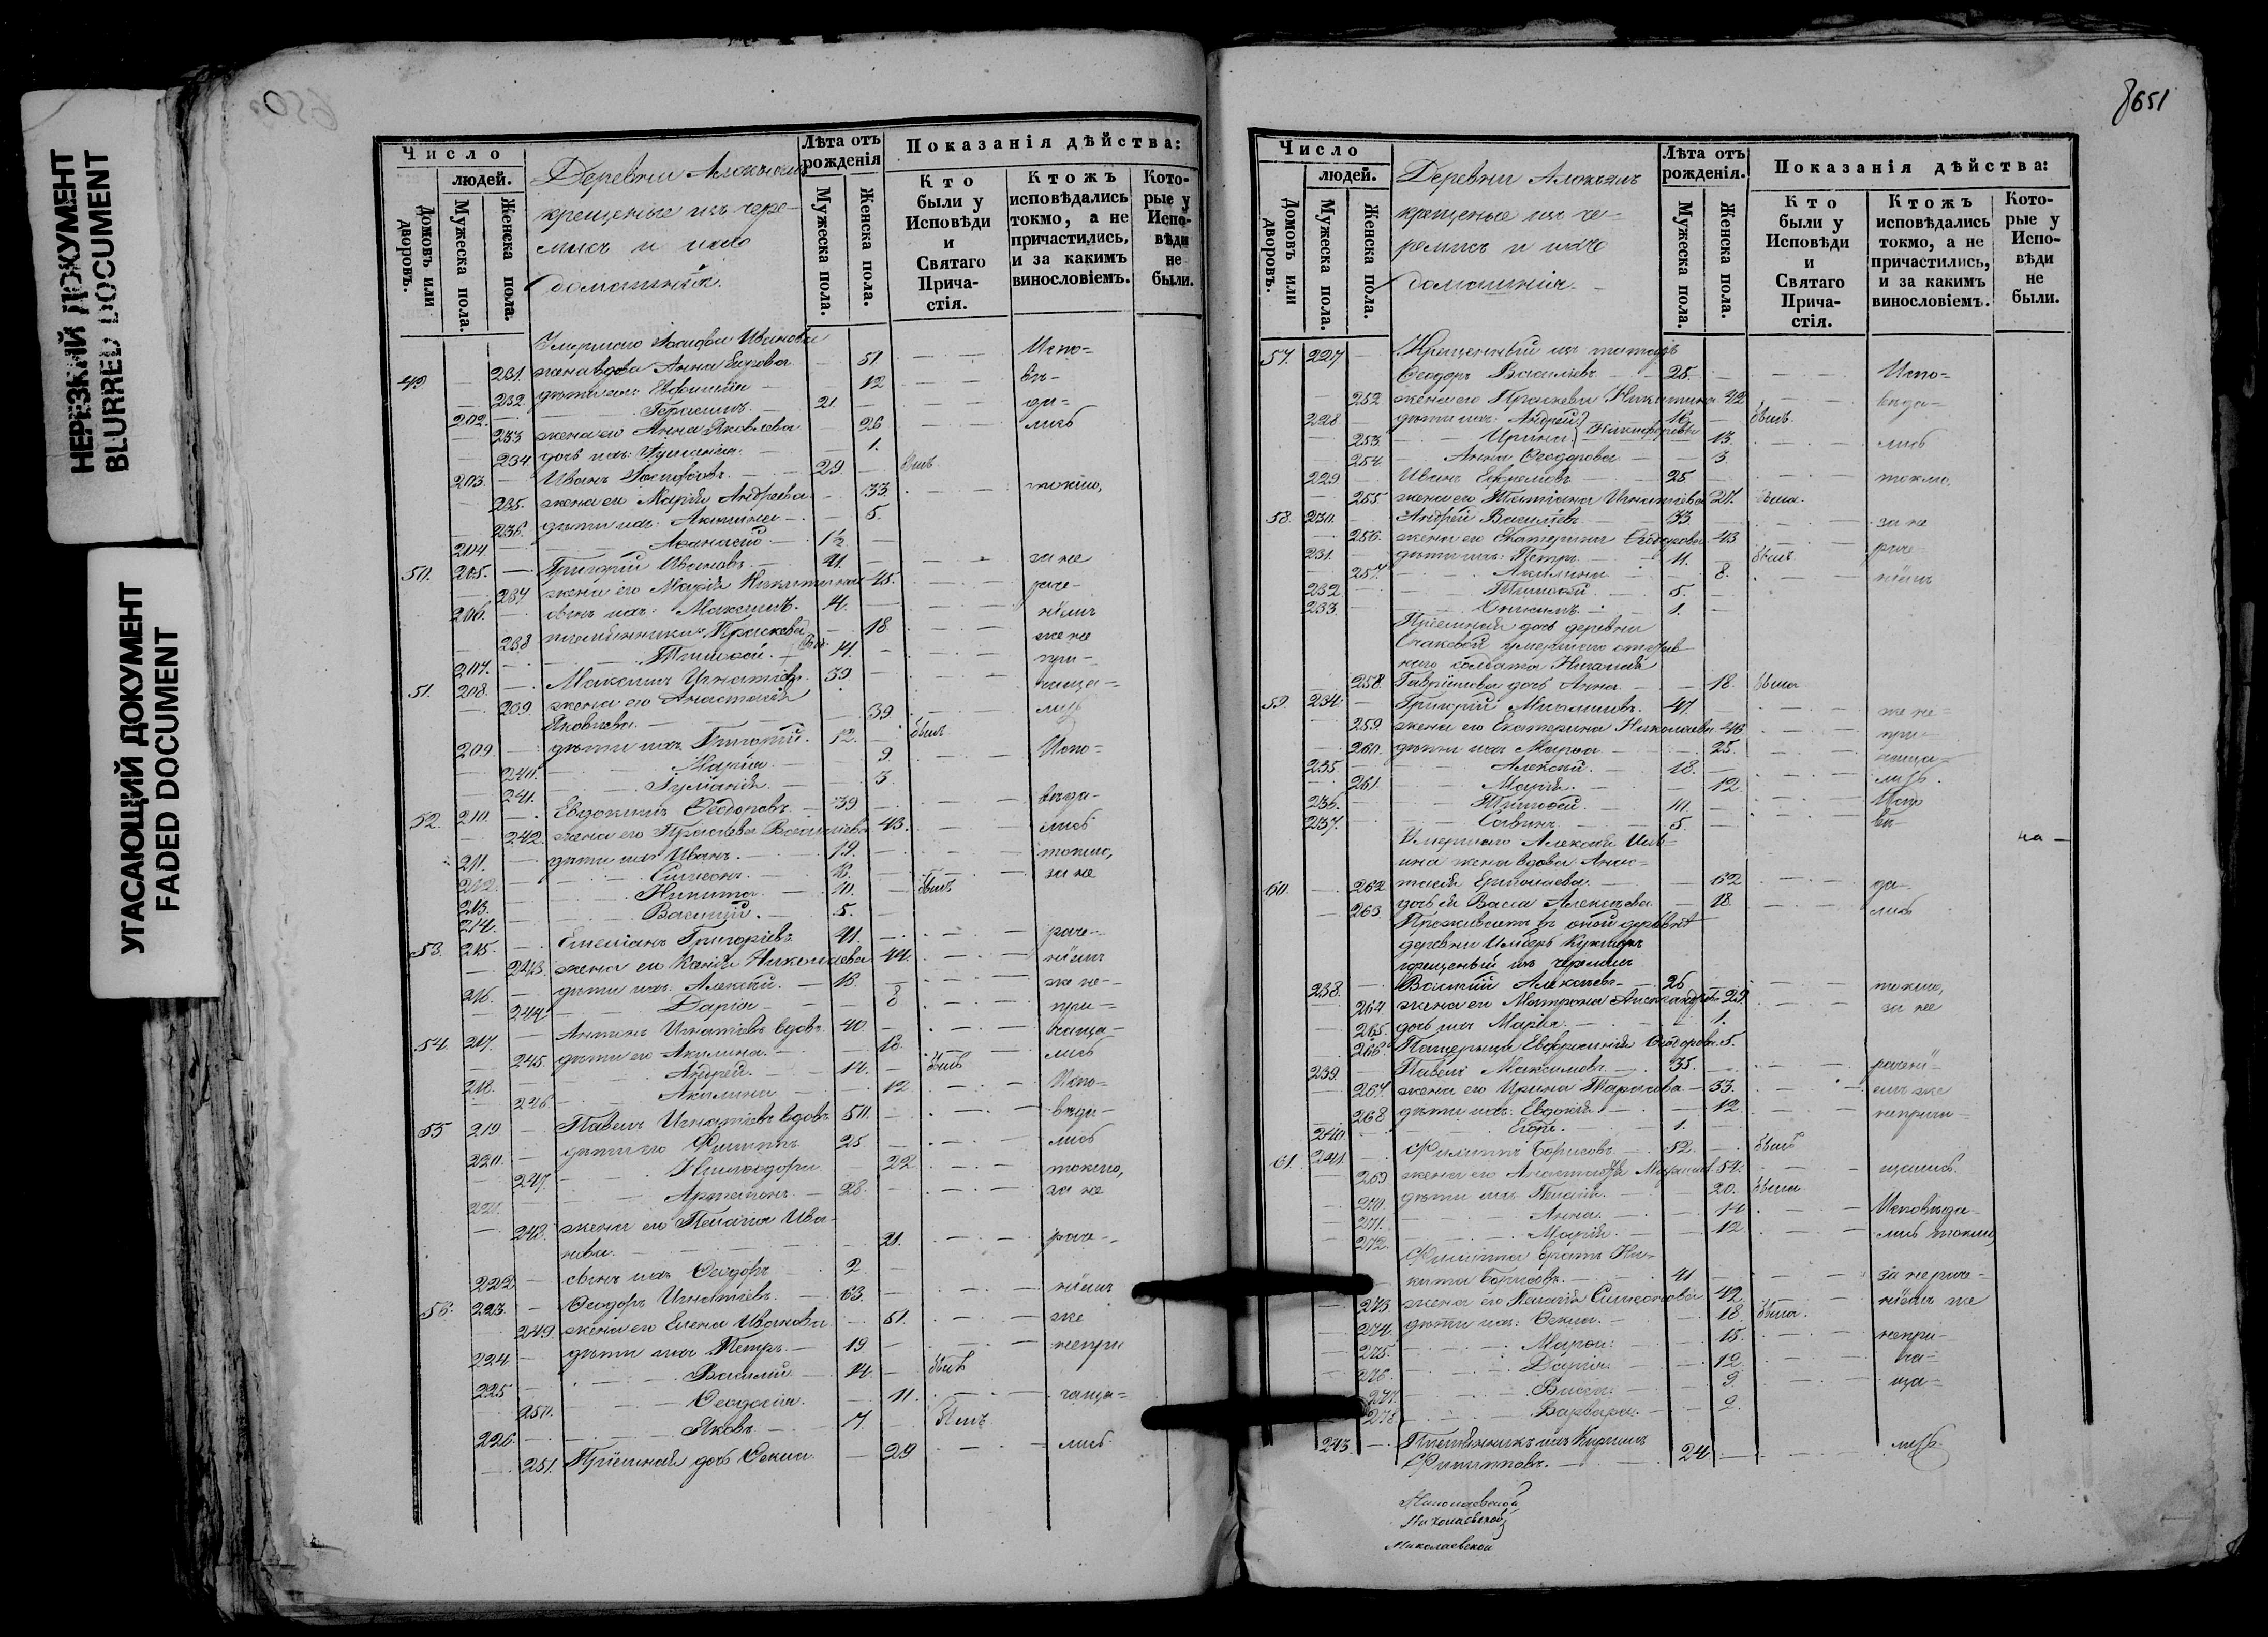 НЕРЕЗКИЙ ДОКУМЕНТ
BLURRED DOCUMENT
УГАСАЮЩИЙ ДОКУМЕНТ
FADED DOCUMENT
Число
людей.
Домовъ или дворовъ.
Мужеска пола.
Женска пола.
Деревни
крещеные изъ чере-
мисъ и ихъ
домашнія.
Лѣта отъ рожденія
Мужеска пола.
Женска пола.
Показанія дѣйства:
Кто были у Исповѣди и Святаго Прича-стія.
Ктожъ исповѣдались токмо, а не причастились, и за какимъ винословіемъ.
Кото-рые у Испо-вѣди не были.
Умершаго Іосифа Иванова
49. 231. жена вдова Анна 51 Испо-
232. дѣти ея: 12 вѣ-
202. Герасимъ 21. да-
233 жена его Анна Яковлева 26 лись
234. дочь ихъ: Іуліанія 1.
203. Иванъ Іосифовъ 29. былъ
235. жена его Марія Андреева 33. токмо,
236. дѣти ихъ: Акилина 5.
204. Афанасій 1½
50. 205. Григорій Ивановъ 41. за не
237 жена его Марія Никитина 45. раче-
206. сынъ ихъ: Максимъ. 14. ніемъ
238 племянники: Параскева 18. же не
207. Тимофей. 14. при-
51. 208. Максимъ Игнатіевъ 39 чаща-
239 жена его Анастасія
Яковлева 39 лись
209. дѣти ихъ Григорій. 12. былъ
240. Марія 9. Испо-
241. Іуліанія. 3.
52. 210. Евдокимъ Ѳеодоровъ 39 вѣда-
242. жена его Параскева Васильева 43. лись
211. дѣти ихъ Иванъ. 19. токмо,
212. Симеонъ. за не
213. Никита 10. былъ
214. Василій. 5.
53. 215. Емеліанъ Григоріевъ 41. раче-
243. жена его Ксенія Николаева 44. ніемъ
216. дѣти ихъ: Алексѣй. же не
244 Дарія 8 при-
54. 217. Игнатіевъ вдовъ 40. чаща-
245. дѣти его Акилина. 18. лись
218. Андрей. 14. былъ
246. Акилина 12. Испо-
55 219. Павелъ Игнатіевъ вдовъ 50. вѣда-
220. дѣти его Филиппъ 25 лись
247. 22. токмо,
221. Артамонъ. 28. за не
248. жена его Пелагія Ива-
нова. 21. раче-
222 сынъ ихъ Ѳеодоръ 2
56. 223. Ѳеодоръ Игнатіевъ. 63. ніемъ
249. жена его Елена Иванова. 51. же
224. дѣти ихъ Петръ. 19. непри
225 Василій 14. былъ
250. Ѳеодосія. 11. чаща-
226. Яковъ. 7. былъ
251. Пріемная дочь Ѳекла 29 лись
651
Число
людей.
Домовъ или дворовъ.
Мужеска пола.
Женска пола.
Деревни
крещеные изъ че-
ремисъ и ихъ
домашнія.
Лѣта отъ рожденія.
Мужеска пола.
Женска пола.
Показанія дѣйства:
Кто были у Исповѣди и Святаго Прича-стія.
Ктожъ исповѣдались токмо, а не причастились, и за какимъ винословіемъ.
Кото-рые у Испо-вѣди не были.
57. 227 Крещенный изъ татаръ
Ѳеодоръ Васильевъ 25. Испо-
252 жена его Параскева Никитина 42 вѣда-
228 дѣти ихъ: Андрей 16. былъ
253. Ирина Никифоровы 13. лись
254. Анна Ѳеодорова 3
229 Иванъ Ефремовъ 25 токмо,
255 жена его Татіана Игнатіева 27. была.
58. 230. Андрей Васильевъ 33 за не
256. жена его Екатерина Ѳеодорова 43 раче
231. дѣти ихъ: Петръ 11. былъ
257. Акилина 8. ніемъ
232 Тимофей 5.
233 Онисимъ 1.
Пріемная дочь деревни
умершаго отстав-
наго солдата
258. Гавріилова дочь Анна 18. была
59. 234. Григорій 47 же не-
259. жена его Екатерина Николаева 46. при-
260. дѣти ихъ Марѳа 25. чаща-
235 Алексѣй. 18. лись.
261. Марія. 12. Испо
236. Тимофей. 10. вѣ-
237. Савинъ 5.
на
Умершаго Алексѣя Иль-
ина жена вдова Анас-
60. 262 тасія Ермолаева 62 да-
263 дочь ея Васса Алексѣева 18. лись
Проживаютъ въ оной деревнѣ
деревни
крещеный изъ черемисъ
238. Василій Алексѣевъ 26 токмо,
264. жена его Матрона Александрова 29. за не
265. дочь ихъ Марѳа. 1.
266. Падчерица Евфросинія Ѳеодорова 5.
239. Павелъ Максимовъ 35. рачені-
267. жена его Ирина Тарасова 33. емъ же
268 дѣти ихъ: Евдокія 12. неприча-
240. Егоръ. 1.
61. 241. Филиппъ Борисовъ 52. былъ
269 жена его Анастасія 54. щались.
270. дѣти ихъ: Пелагія. 20. была
271. Анна. 14 Исповѣда-
272. Марія. 12 лись токмо,
Филиппа братъ Ни-
кита Борисовъ. 41 за нераче-
273. жена его Пелагія Симеонова 42. ніемъ же
274. дѣти ихъ: Ѳекла. 18. была.
275. Марѳа: 15. непри-
276. Дарія. 12. ча-
277. Васса. 9. ща-
278. Варвара. 2.
243. Племянникъ ихъ Кириллъ
Филипповъ. 24. лись.
Николаевской
Николаевской
Николаевской